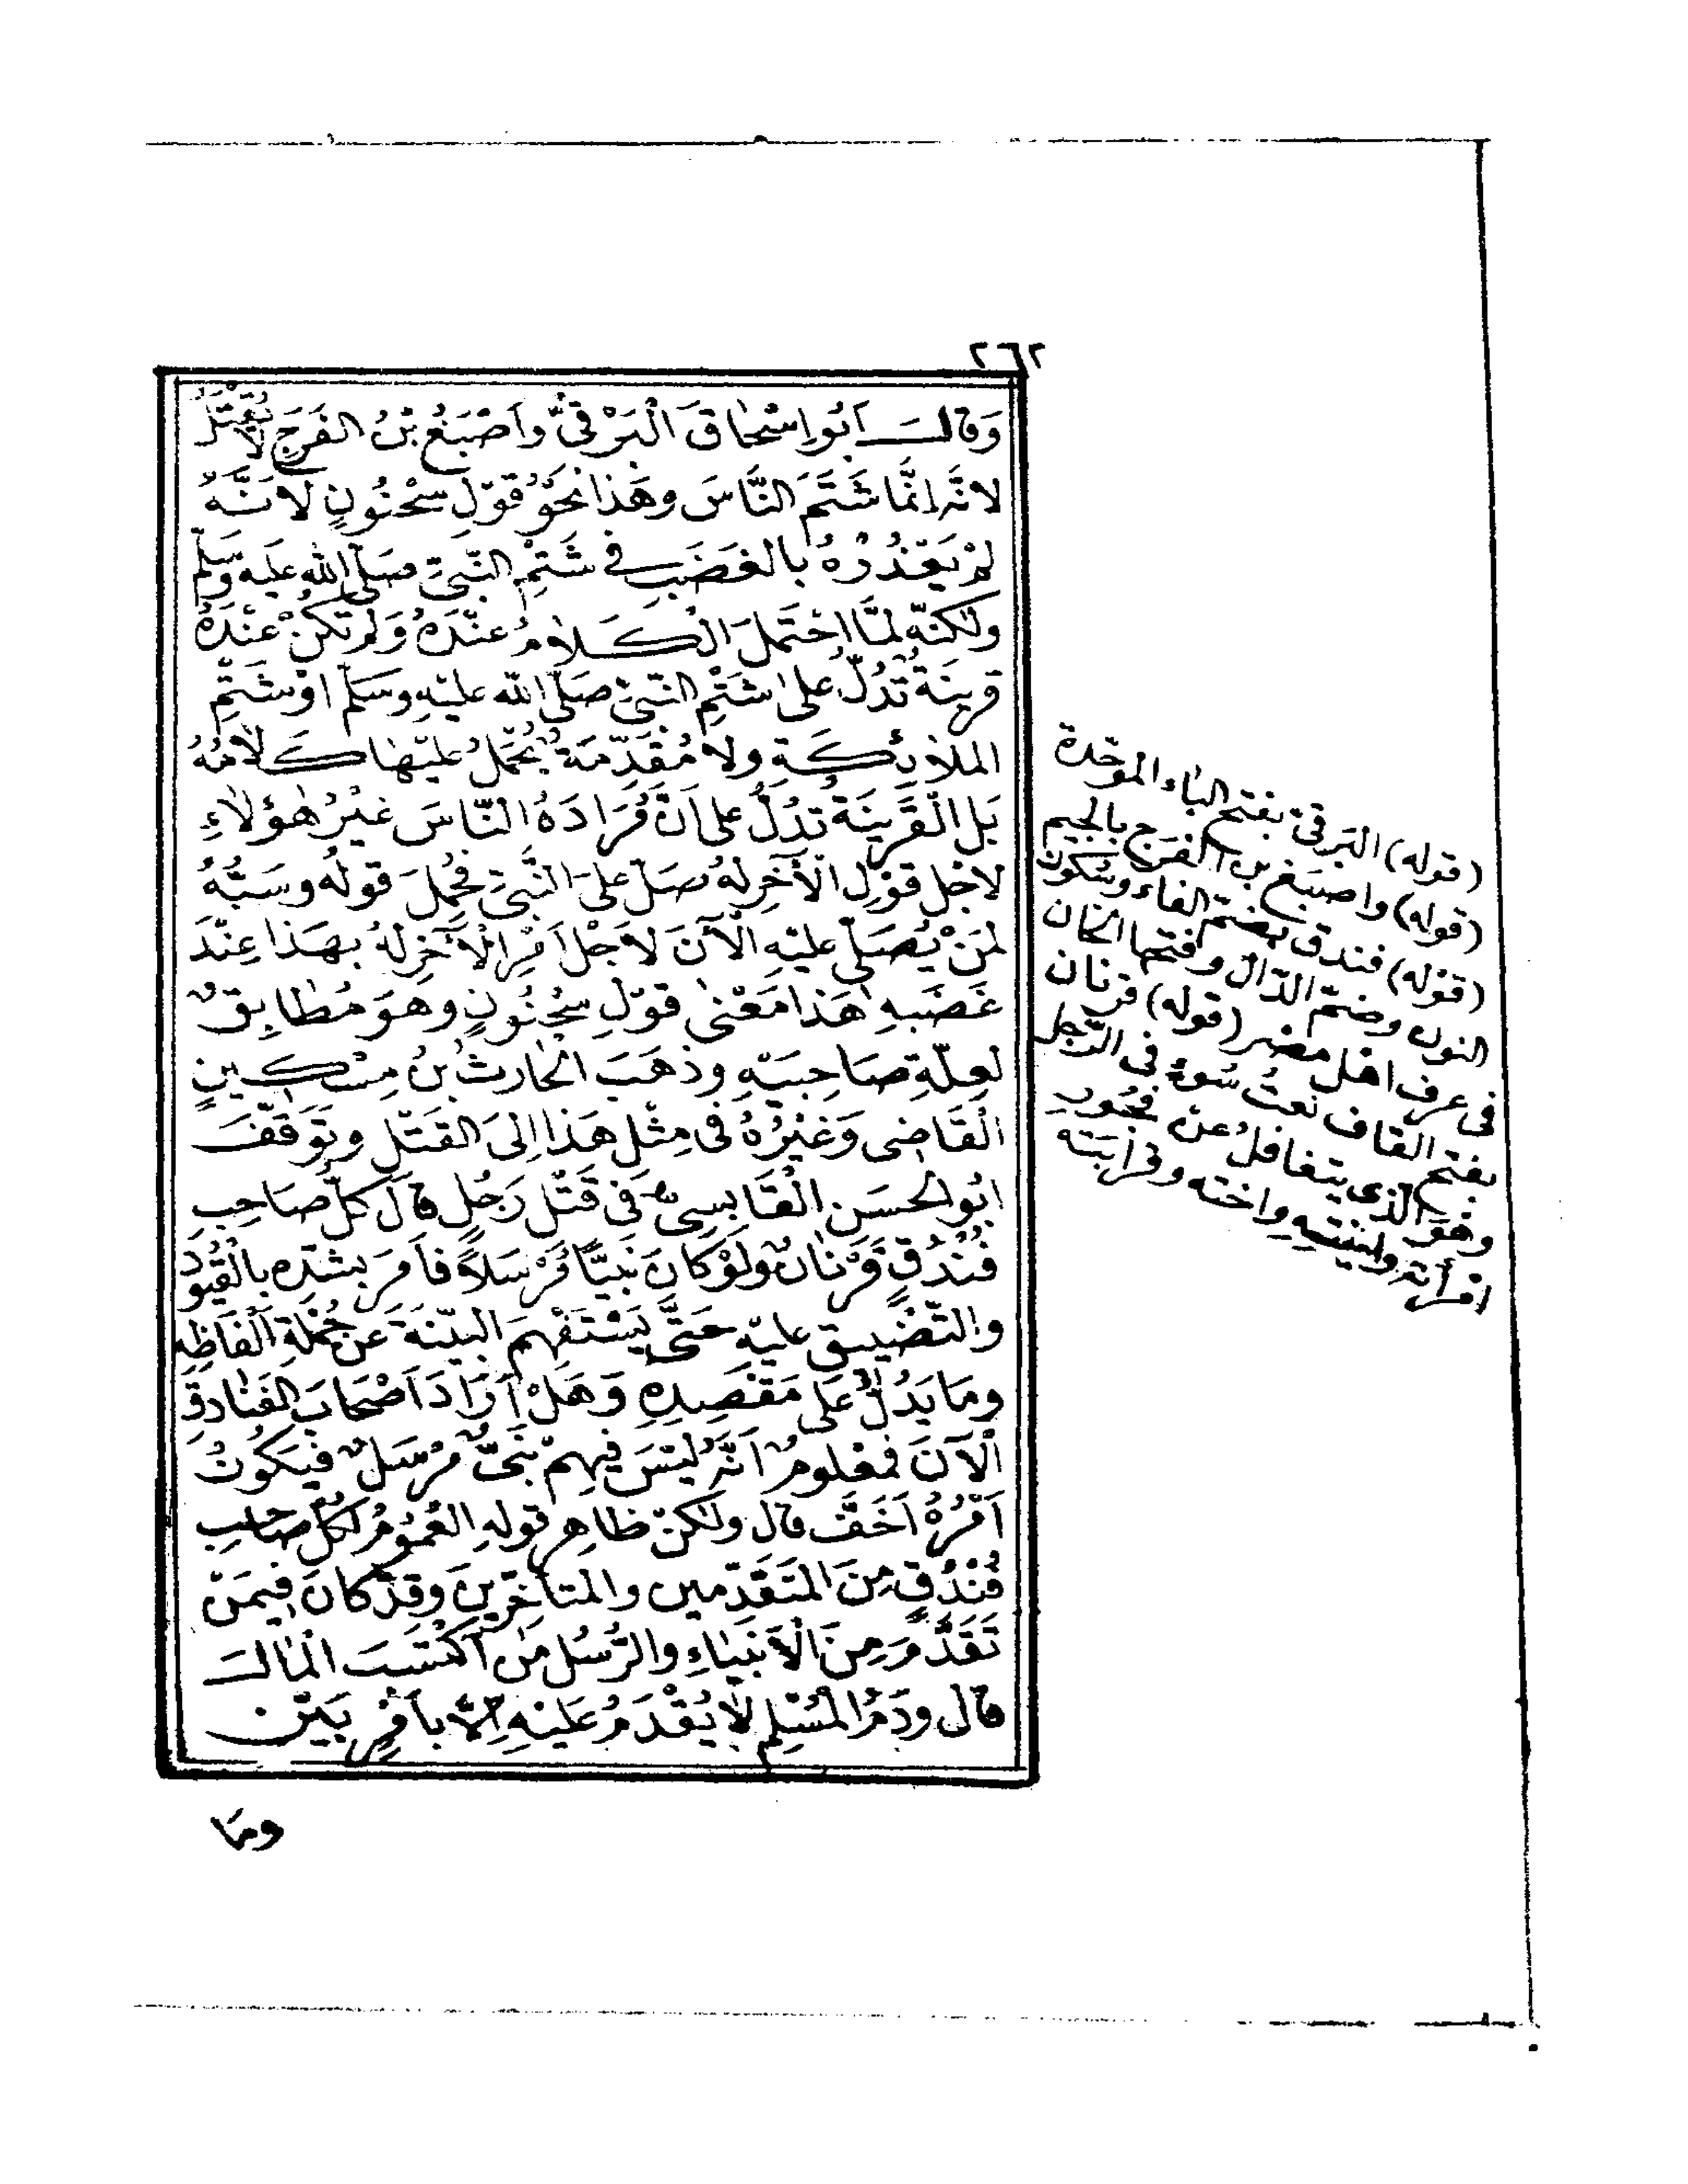 ٢٦٢
وَقَالَ أَبُو إِسْحَاقَ الْبَرْقِيُّ وَأَصْبَغُ بْنُ الفَرَجِ لَا يُقْتَلُ
لِأَنَّهُ إِنَّمَا شَتَمَ النَّاسَ وَهَذَا نَحْوُ قَوْلِ سَحْنُونٍ لِأَنَّهُ
لَمْ يَعْذُرْهُ بِالْغَضَبِ فِي شَتْمِ النَّبِيِّ صَلَّى اللهُ عَلَيْهِ وَسَلَّمَ
وَلٰكِنَّهُ لَمَّا احْتَمَلَ الْكَلَامُ عِنْدَهُ وَلَمْ تَكُنْ عِنْدَهُ
قَرِينَةٌ تَدُلُّ عَلَى شَتْمِ النَّبِيِّ صَلَّى اللهُ عَلَيْهِ وَسَلَّمَ أَوْ شَتْمِ
المَلَائِكَةِ وَلَا مُقَدِّمَةٌ يُحْمَلُ عَلَيْهَا كَلَامُهُ
بَلِ الْقَرِينَةُ تَدُلُّ عَلَى أَنَّ مُرَادَهُ النَّاسَ غَيْرُ هٰؤُلَاءِ
لِأَجْلِ قَوْلِ الْآخَرِ لَهُ صَلِّ عَلَى النَّبِيِّ فَحُمِلَ قَوْلُهُ وَسَبُّهُ
لِمَنْ يُصَلِّي عَلَيْهِ الْآنَ لِأَجْلِ أَمْرِ الْآخَرِ لَهُ بِهَذَا عِنْدَ
غَضَبِهِ هَذَا مَعْنَى قَوْلِ سَحْنُونٍ وَهُوَ مُطَابِقٌ
لِعِلَّةِ صَاحِبَيْهِ وَذَهَبَ الْحَارِثُ بْنُ مِسْكِينٍ
الْقَاضِي وَغَيْرُهُ فِي مِثْلِ هَذَا إِلَى القَتْلِ وَتَوَقَّفَ
أَبُو الْحَسَنِ الْقَابِسِيُّ فِي قَتْلِ رَجُلٍ قَالَ كُلُّ صَاحِبِ
فُنْدُقٍ قَرْنَانٌ وَلَوْ كَانَ نَبِيًّا مُرْسَلًا فَأَمَرَ بِشَدِّهِ بِالْقُيُودِ
وَالتَّضْيِيقِ عَلَيْهِ حَتَّى يَسْتَفْهِمَ البَيِّنَةَ عَنْ جُمْلَةِ أَلْفَاظِهِ
وَمَا يَدُلُّ عَلَى مَقْصِدِهِ وَهَلْ أَرَادَ أَصْحَابَ الفَنَادِقِ
الْآنَ فَمَعْلُومٌ أَنَّهُ لَيْسَ فِيهِمْ نَبِيٌّ مُرْسَلٌ فَيَكُونُ
أَمْرُهُ أَخَفَّ قَالَ وَلٰكِنْ ظَاهِرُ قَوْلِهِ العُمُومُ لِكُلِّ صَاحِبِ
فُنْدُقٍ مِنَ المُتَقَدِّمِينَ وَالمُتَأَخِّرِينَ وَقَدْ كَانَ فِيمَنْ
تَقَدَّمَ مِنَ الْأَنْبِيَاءِ وَالرُّسُلِ مَنِ اكْتَسَبَ الْمَالَ
قَالَ وَدَمُ الْمُسْلِمِ لَا يُقْدَمُ عَلَيْهِ إِلَّا بِأَمْرٍ بَيِّنٍ
وَمَا
(قوله) البَرقي بفتح الباء الموحدة
(قوله) واصبغ بن الفَرَج بالجيم
(قوله) فندق بضم الفاء وسكون
النون وضم الدّال وفتحها الخان
في عرف اهل مصر (قوله) قرنان
بفتح القاف نعت سُوءٍ في الرّجل
وهو الذي يتغافل عن فجور
امرأته وابنته واخته وقرابته